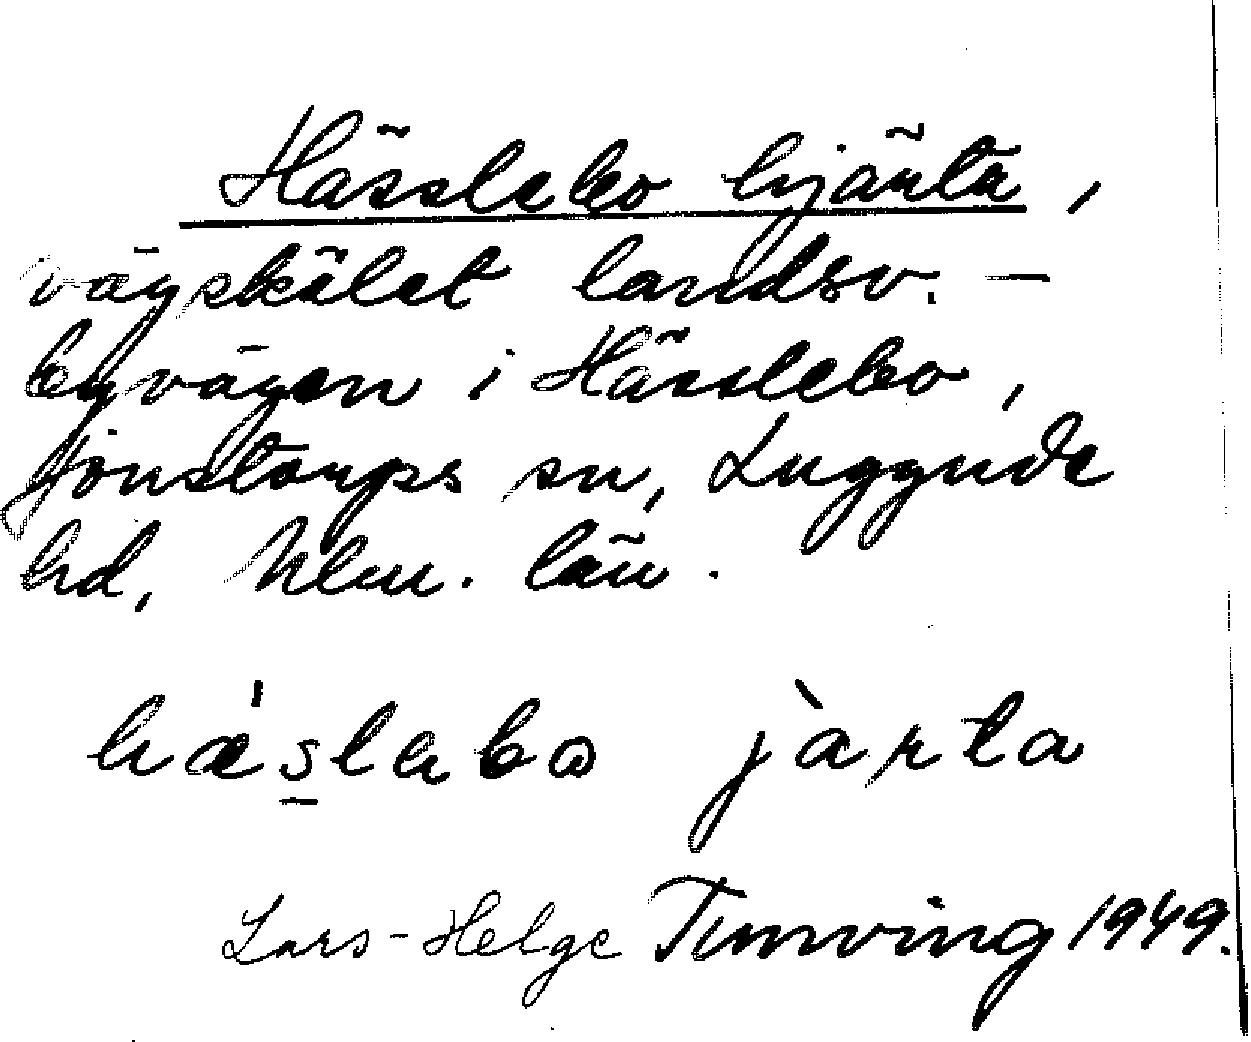 Hässlebo hjärta,
vägskälet landsv. –
byvägen i Hässlebo,
Jonstorps sn, Luggude
hd, Mlm. län.
hæslabo jarta
Lars-Helge Tunving 1949.